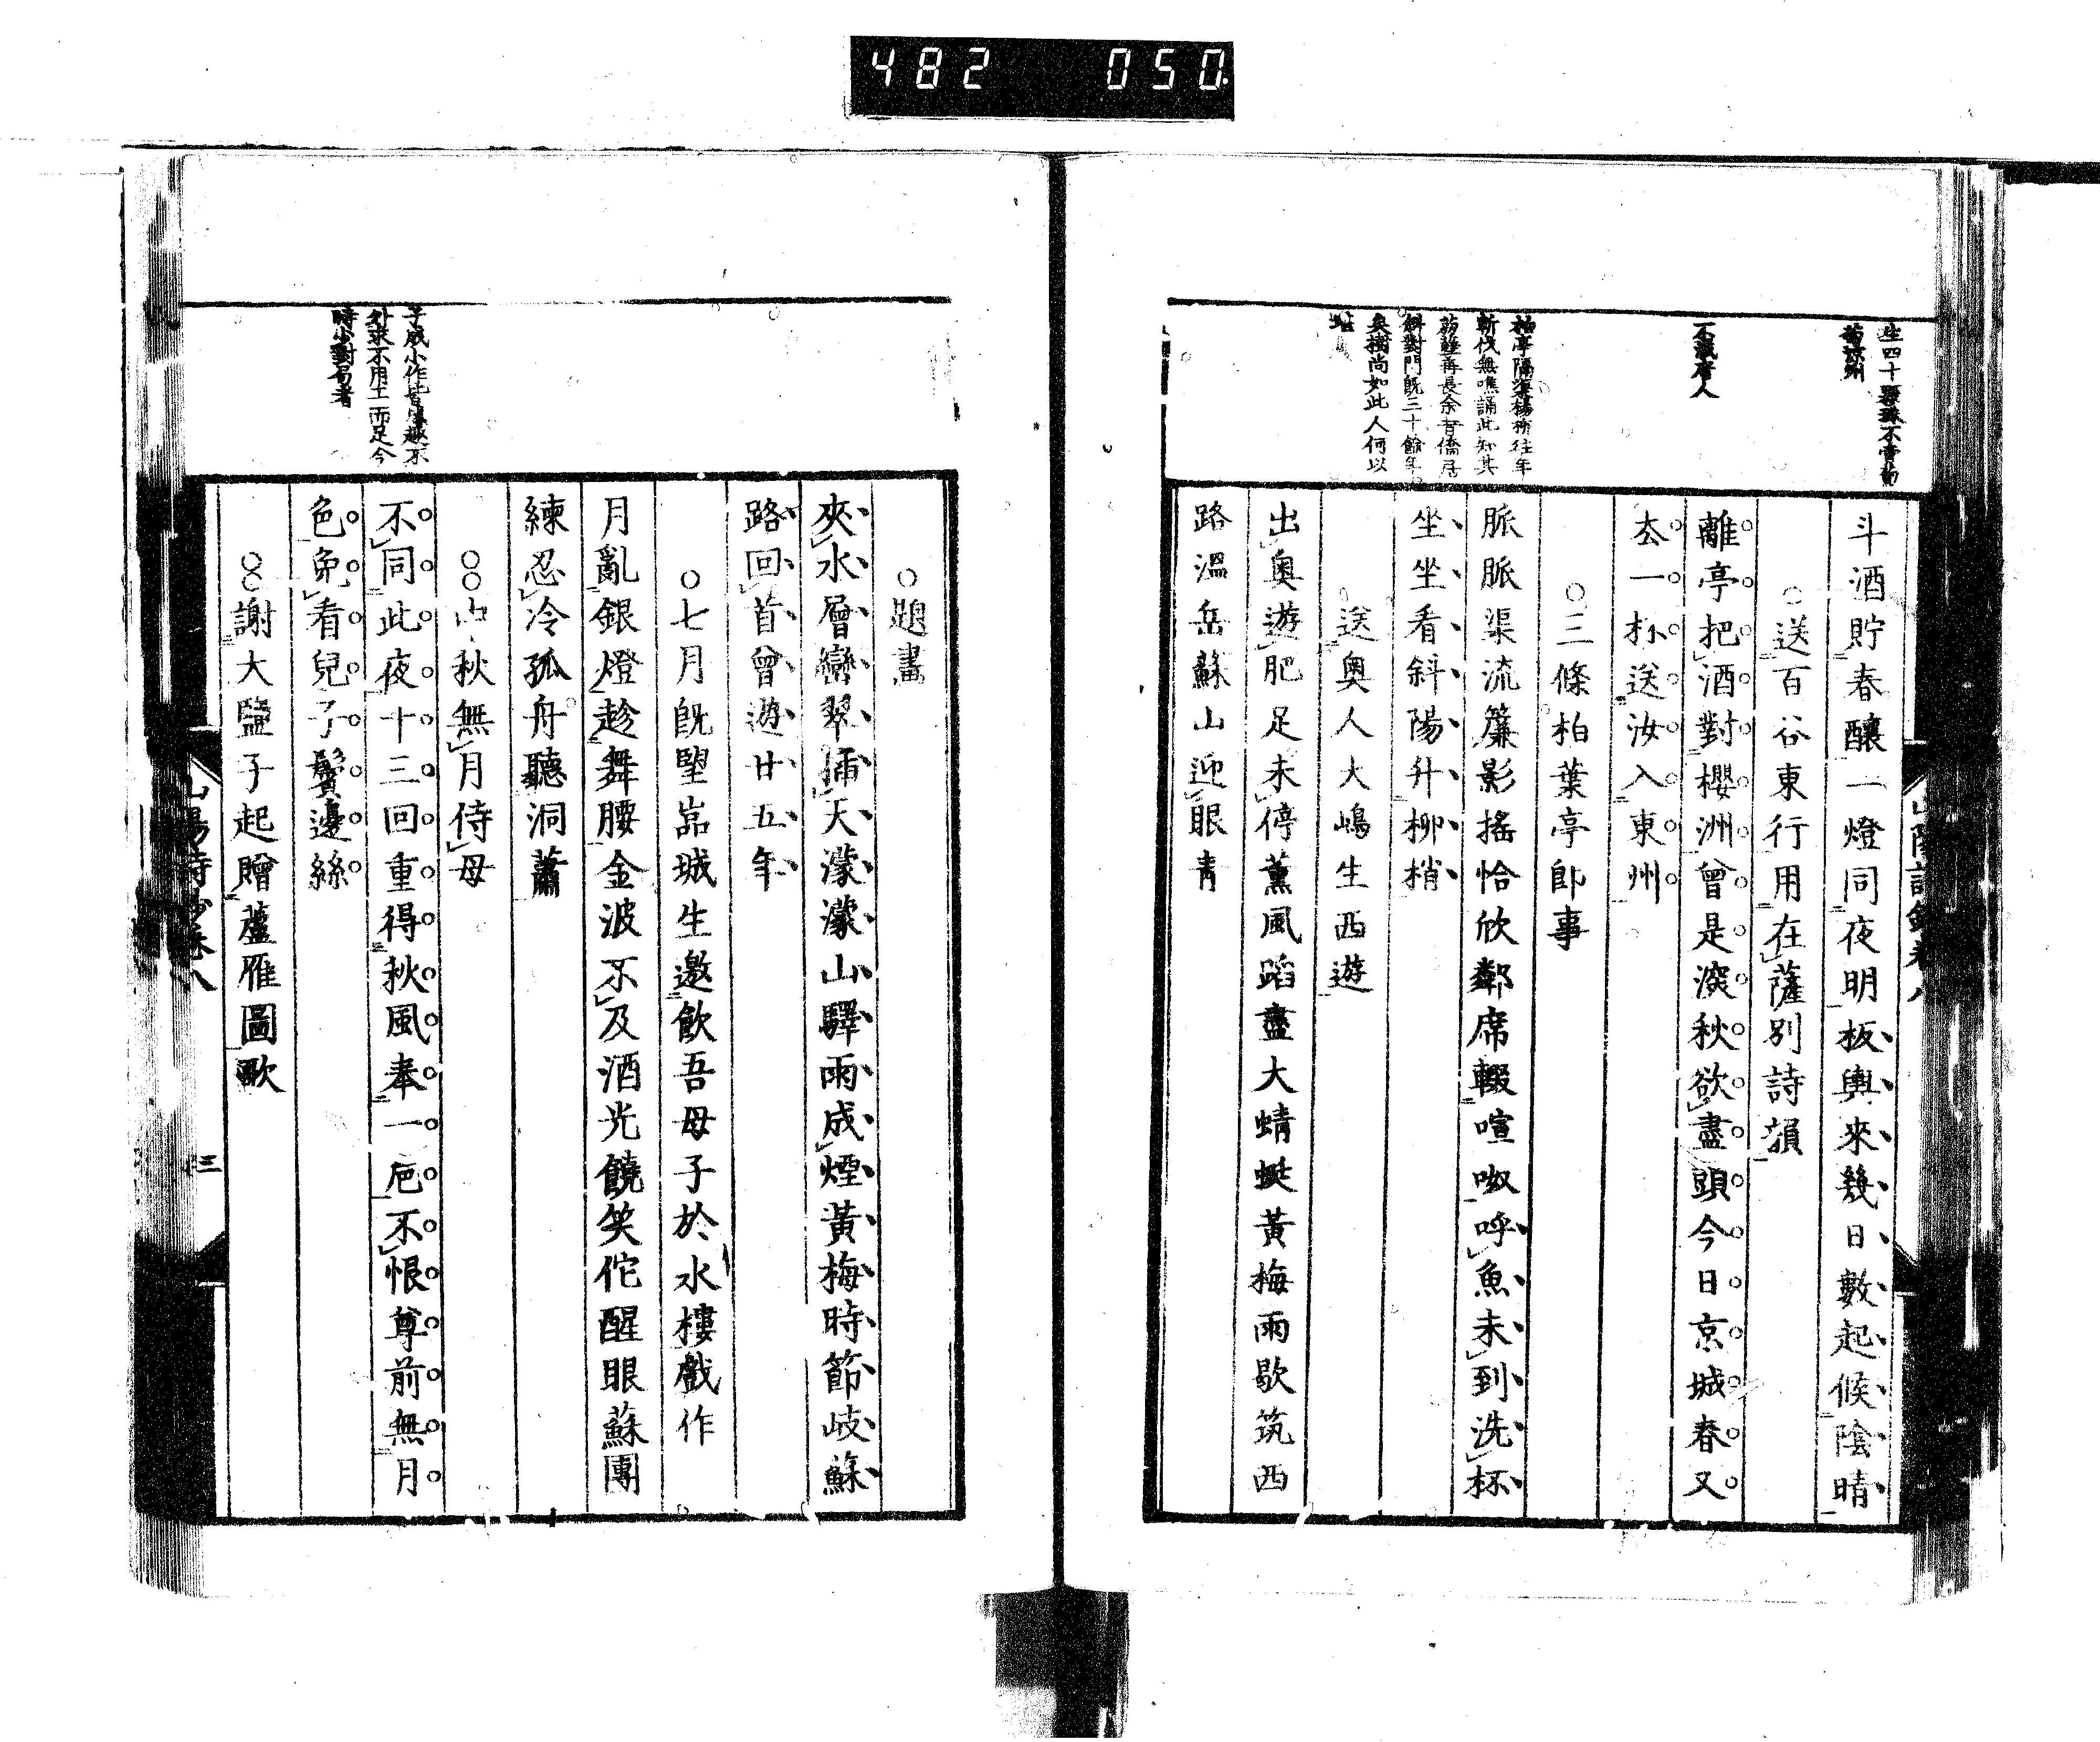 482 050
生四十顆珠不當
葡萄涼州
斗酒貯春釀一燈同夜明板輿來幾日數起候陰晴
送百谷東行用在薩別詩韻
不減唐人
離亭把酒對櫻洲曾是深秋欲盡頭今日京城春又
去一杯送汝入東州
三條柏葉亭即事
柏亭隔渠楊柳往年
斬伐無噍誦此知其
萌蘗再長余昔僑居
斜對門既三十餘年
矣樹尚如此人何以
堪
脈脈渠流簾影搖恰欣鄰席輟喧呶呼魚未到洗杯
坐坐看斜陽升柳梢
送奧人大嶋生西遊
出奧遊肥足未停薰風蹈盡大蜻蜓黃梅雨歇筑西
路溫岳蘇山迎眼青
山陽詩鈔卷八
題畫
夾水層巒翠插天濛濛山驛雨成煙黃梅時節岐蘇
路回首曾遊廿五年
七月既望嵓城生邀飲吾母子於水樓戲作
月亂銀燈趁舞腰金波不及酒光饒笑佗醒眼蘇團
練忍冷孤舟聽洞蕭
中秋無月侍母
子成小作皆溢趣不
外求不用工而足今
時少對局者
不同此夜十三回重得秋風奉一巵不恨尊前無月
色免看兒子鬢邊絲
謝大鹽子起贈蘆雁圖歌
山陽詩鈔卷八
三